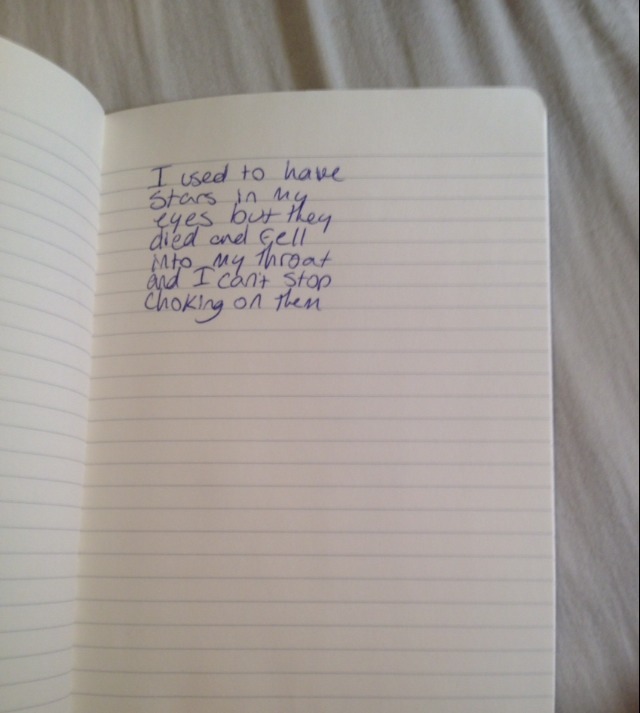 I used to have
stars in my
eyes but they
died and fell
into my throat
and I can't stop
choking on them